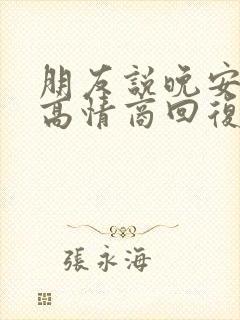 朋友說晚安
高情商回復
張永海